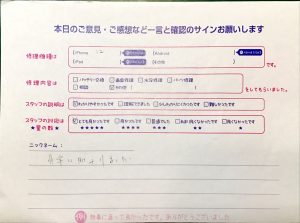 本日のご意見・ご感想など一言と確認のサインお願いします
修理機種は
iPhone 12
Android
iPad
その他
です。
修理内容は
バッテリー交換 画面修理 水没修理 パーツ修理
相談 その他
をしてもらいました。
スタッフの説明は
わかりやすかったです 理解できました 少しわかりにくかったです 難しかったです
スタッフの対応は
★星の数★
とても良かったです 良かったです 普通でした あまり良くなかったです 良くなかったです
★★★★★ ★★★★ ★★★ ★★ ★
ニックネーム：
非常に助かりました